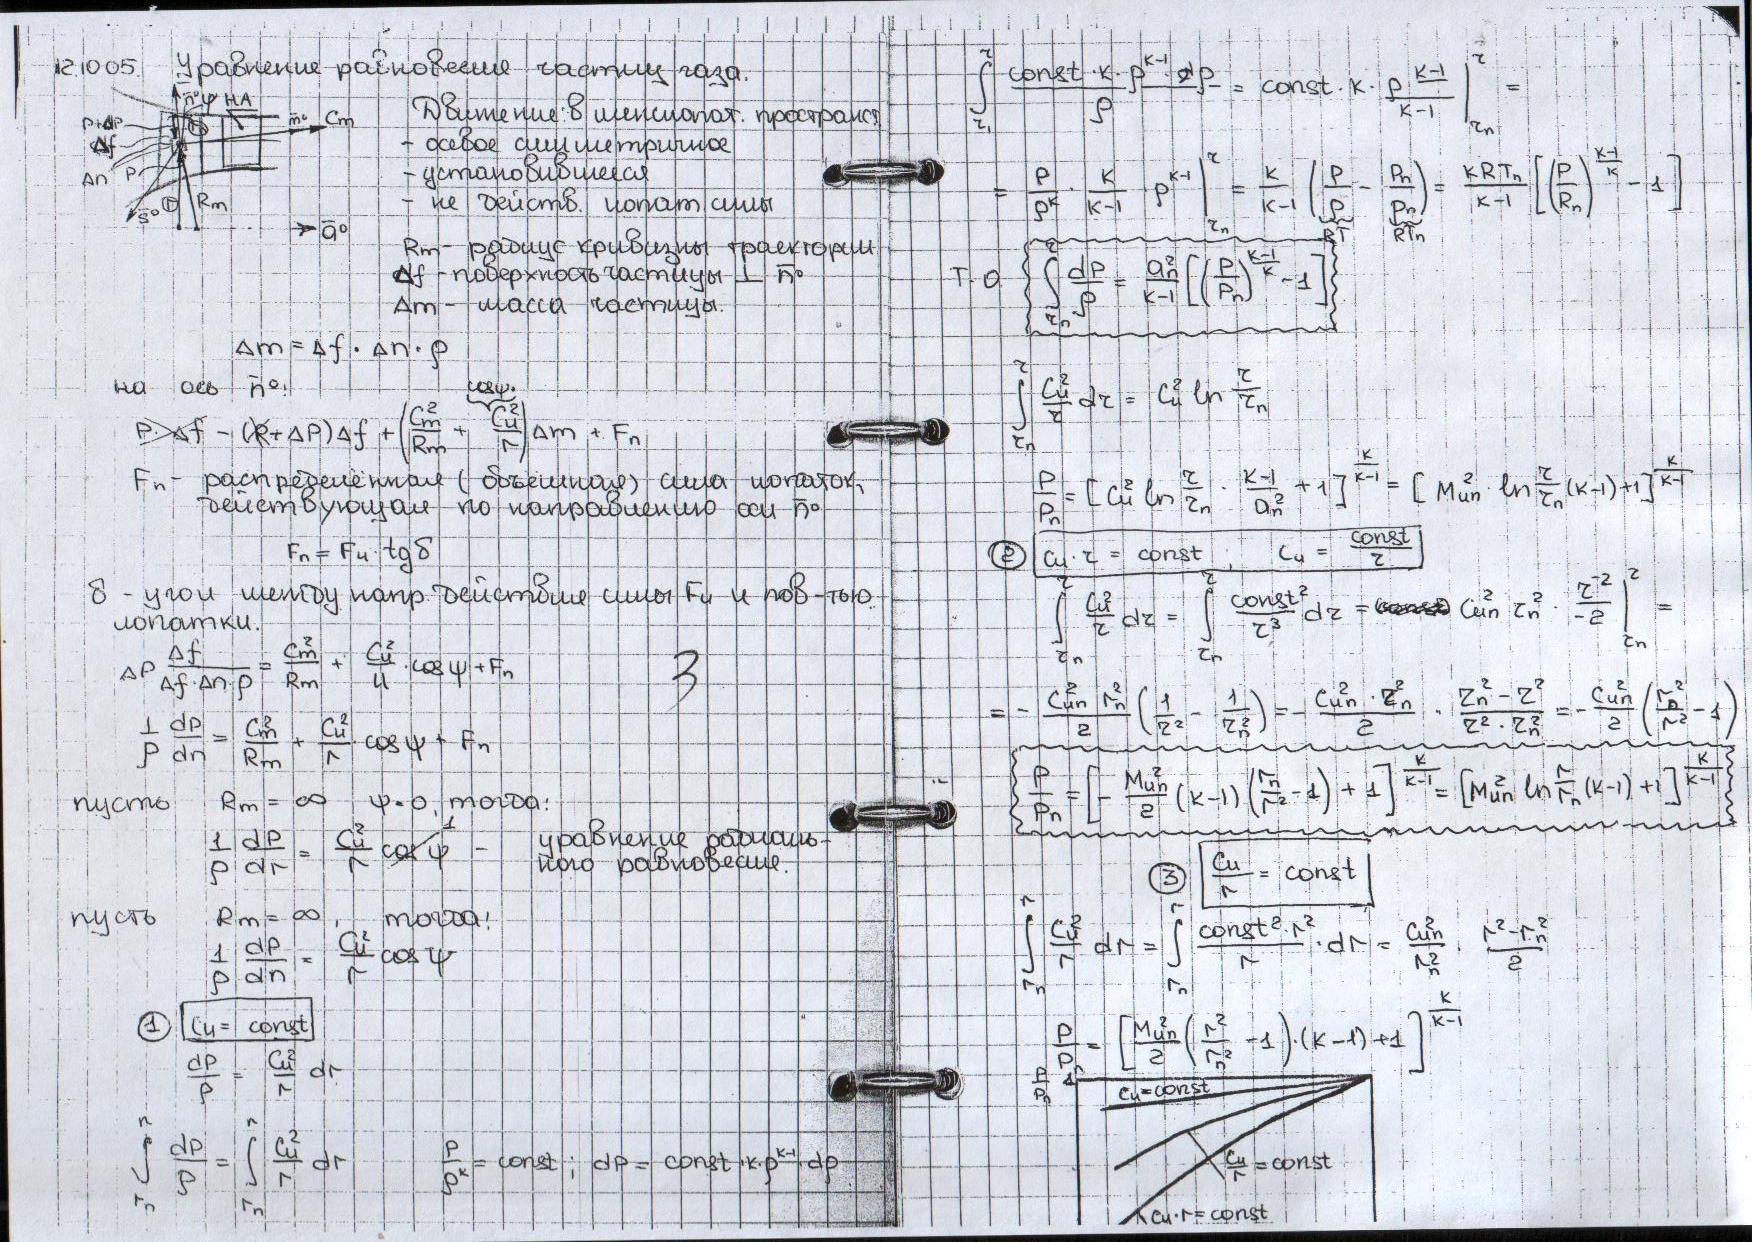 12.10.05. Уравнение равновесия частиц газа.
n̄° ψ НА
P+ΔP m̄° Cm
Δf
Δn P
s̄° Rm
ā°
Движение в межлопат. пространст
- осесимметричное
- установившееся
- не действ. лопат силы
Rm - радиус кривизны траектории
Δf - поверхность частицы ⊥ n̄°
Δm - масса частицы.
Δm = Δf · Δn · ρ
на ось n̄°:
P Δf - (P + ΔP) Δf + (Cm²/Rm + Cu²/r) Δm + Fn
cosψ.
Fn - распределённая (объёмная) сила лопаток,
действующая по направлению оси n̄°
Fn = Fu · tg δ
δ - угол между напр. действия силы Fu и пов-тью
лопатки.
ΔP Δf/(Δf·Δn·ρ) = Cm²/Rm + Cu²/u · cos ψ + Fn
1/ρ dp/dn = Cm²/Rm + Cu²/r · cos ψ + Fn
пусть Rm = ∞ ψ = 0, тогда:
1/ρ dp/dr = Cu²/r cos ψ 1 - уравнение радиаль-
ного равновесия.
пусть Rm = ∞, тогда:
1/ρ dp/dn = Cu²/r cos ψ
① Cu = const
dp/ρ = Cu²/r dr
∫ rn r dp/ρ = ∫ rn r Cu²/r dr P/ρ^k = const; dp = const·k·ρ^(k-1)·dρ
3
∫ r₁ r const·k·ρ^(k-1)·dρ/ρ = const·k·ρ^(k-1)/(k-1) | rn r =
= P/ρ^k · k/(k-1) · ρ^(k-1) | rn r = k/(k-1) (P/ρ - Pn/ρn) = kRTn/(k-1) [(P/Pn)^((k-1)/k) - 1]
RT RTn
Т.О. ∫ rn r dp/ρ = an²/(k-1) [(P/Pn)^((k-1)/k) - 1]
∫ rn r Cu²/r dr = Cu² ln r/rn
P/Pn = [Cu² ln r/rn · (k-1)/an² + 1]^(k/(k-1)) = [Mun² · ln r/rn (k-1) + 1]^(k/(k-1))
② Cu · r = const, Cu = const/r
∫ rn r Cu²/r dr = ∫ rn r const²/r³ dr = Cun² rn² · r⁻²/-2 | rn r =
= - Cun² rn²/2 (1/r² - 1/rn²) = - Cun² · rn²/2 · (rn² - r²)/(r² · rn²) = - Cun²/2 (rn²/r² - 1)
P/Pn = [- Mun²/2 (k-1) (rn²/r² - 1) + 1]^(k/(k-1)) = [Mun² ln r/rn (k-1) + 1]^(k/(k-1))
③ Cu/r = const
∫ rn r Cu²/r dr = ∫ rn r const²·r²/r · dr = Cun²/rn² · (r² - rn²)/2
P/Pn = [Mun²/2 (r²/rn² - 1)·(k-1) + 1]^(k/(k-1))
P/Pn 1
Cu = const
Cu/r = const
Cu·r = const